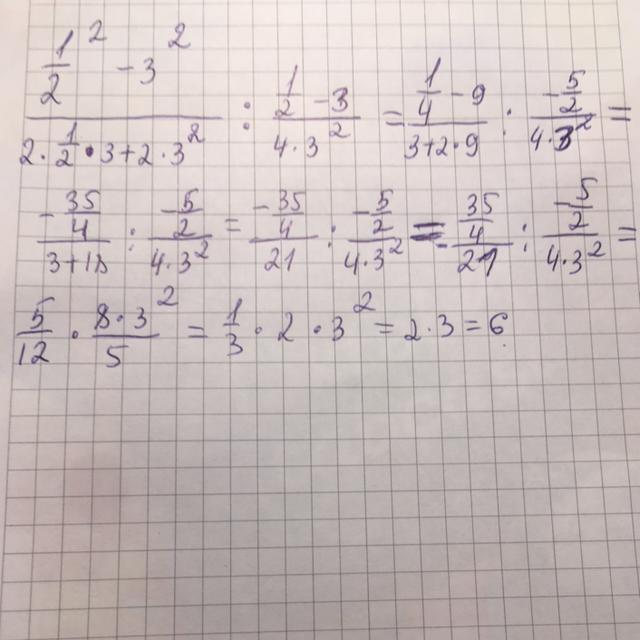 (1/2² - 3²)/(2·1/2·3+2·3²) : (1/2 - 3)/(4·3²) = (1/4 - 9)/(3+2·9) : (-5/2)/(4·3²) =
(-35/4)/(3+18) : (-5/2)/(4·3²) = (-35/4)/21 : (-5/2)/(4·3²) = -(35/4)/21 : (-5/2)/(4·3²) =
5/12 · (8·3²)/5 = 1/3 · 2 · 3² = 2·3 = 6